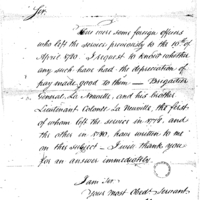 Sir.
There were some foreign officers
who left the service previously to the 10th of
April 1780. I request to know whether
any such have had the depreciation of
pay made good to them — Brigadier
General La Neuville, and his brother
Lieutenant Colonel La Neuville, the first
of whom left the service in 1778. and
the other in 1780. have written to me
on this subject — I will thank you
for an answer immediately.
I am Sir
Your most Obedt. Servant